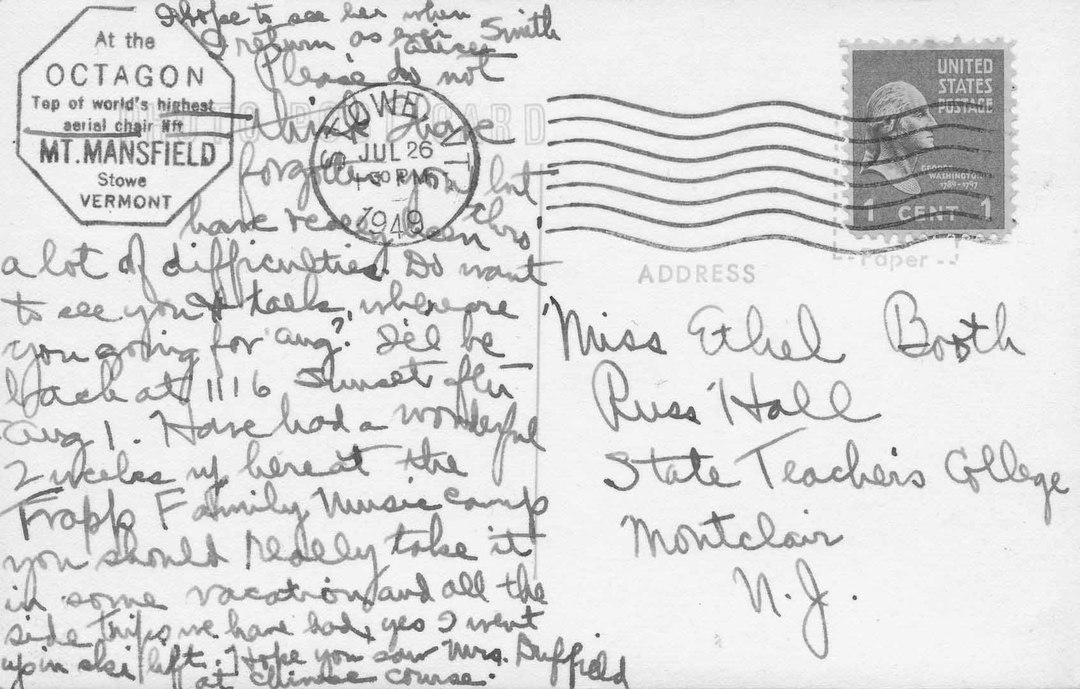 At the
OCTAGON
Top of world's highest
aerial chair lift
MT. MANSFIELD
Stowe
VERMONT
STOWE VT.
JUL 26
PM
1949
UNITED
STATES
POSTAGE
GEORGE
WASHINGTON
1789-1797
1 CENT 1
Paper
ADDRESS
Miss Ethel Booth
Russ Hall
State Teachers College
Montclair
N.J.
Please do not
think I have
forgotten you but
have really been thro'
a lot of difficulties. Do want
to see you & talk, where are
you going for Aug? I'll be
back at 1116 Sunset after
Aug 1. Have had a wonderful
2 weeks up here at the
Trapp Family Music Camp
you should really take it
in some vacation and all the
side trips we have had, yes I went
up in ski lift. Hope you saw Mrs. Duffield
at Chinese course.
I hope to see her when
I return as ever
Smith